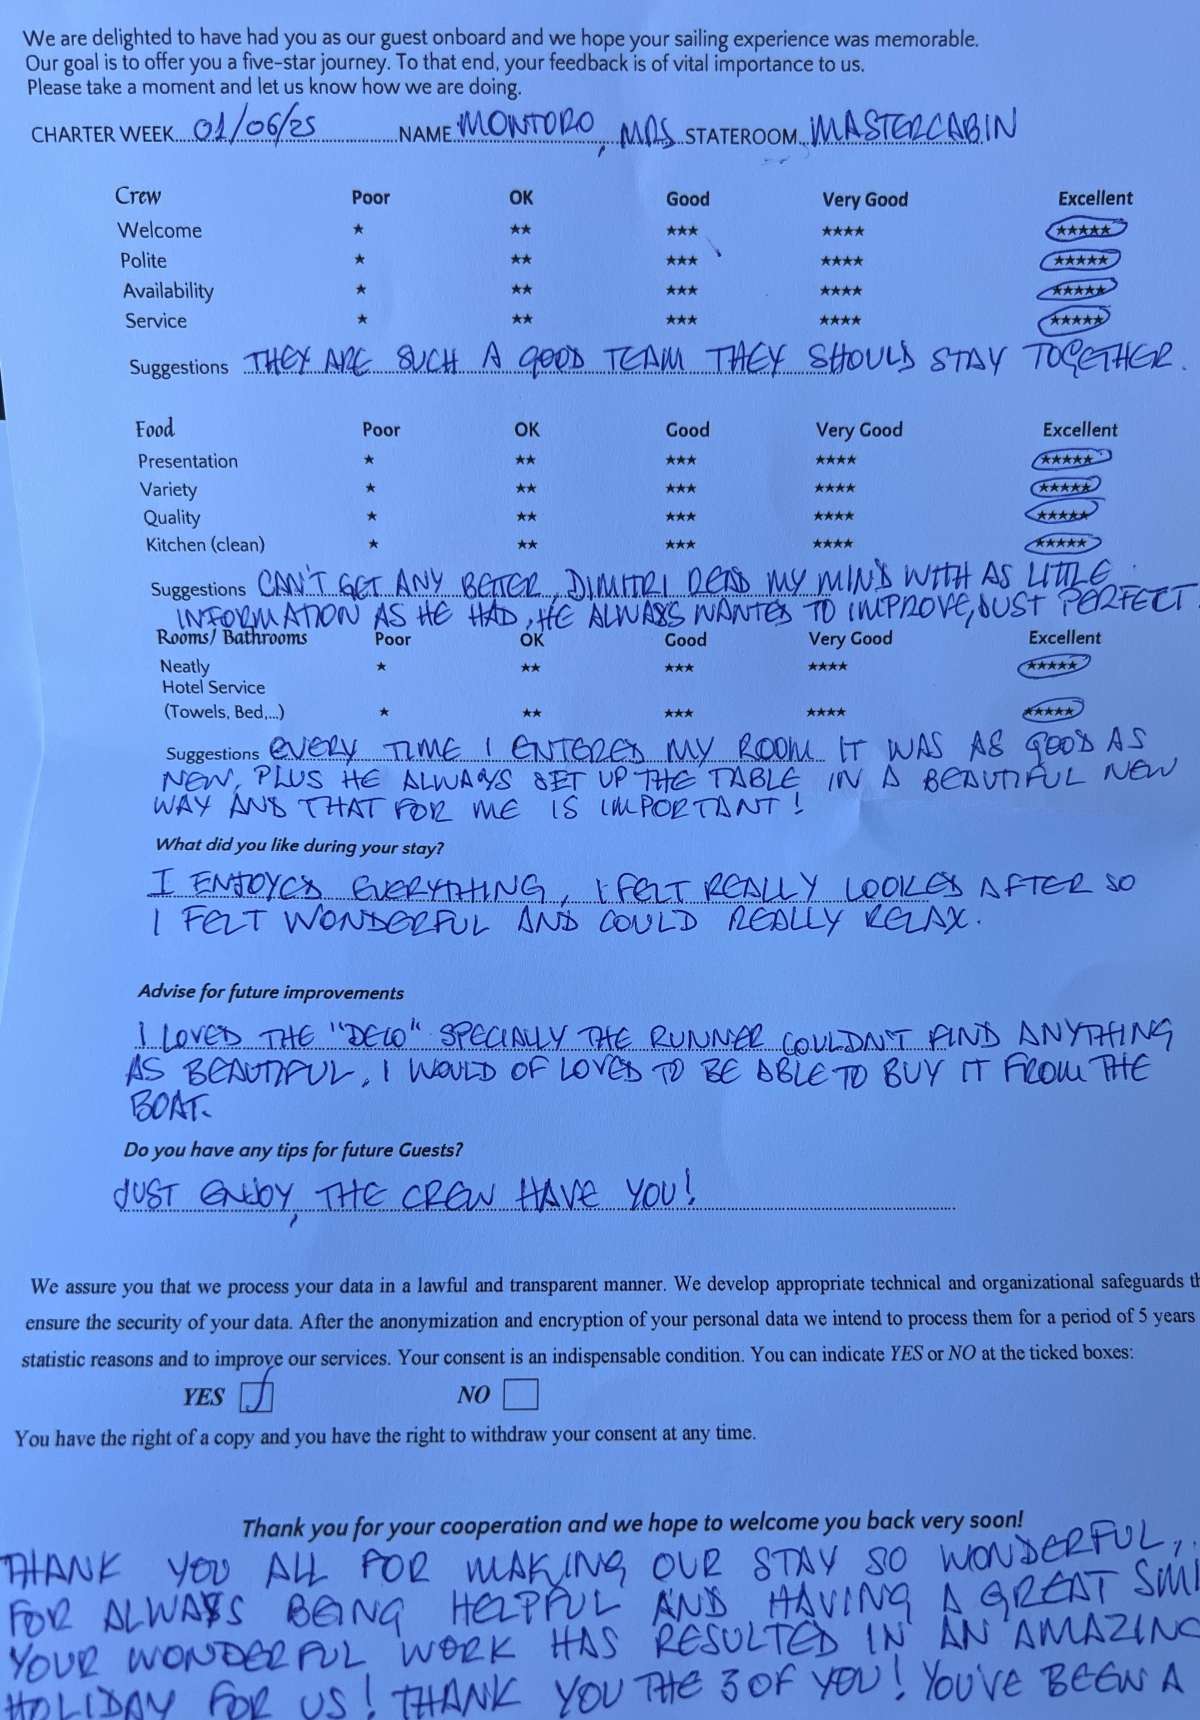 We are delighted to have had you as our guest onboard and we hope your sailing experience was memorable.
Our goal is to offer you a five-star journey. To that end, your feedback is of vital importance to us.
Please take a moment and let us know how we are doing.
CHARTER WEEK 01/06/25 NAME MONTORO, MRS STATEROOM MASTERCABIN
Crew Poor OK Good Very Good Excellent
Welcome ★ ★★ ★★★ ★★★★ ★★★★★
Polite ★ ★★ ★★★ ★★★★ ★★★★★
Availability ★ ★★ ★★★ ★★★★ ★★★★★
Service ★ ★★ ★★★ ★★★★ ★★★★★
Suggestions THEY ARE SUCH A GOOD TEAM THEY SHOULD STAY TOGETHER.
Food Poor OK Good Very Good Excellent
Presentation ★ ★★ ★★★ ★★★★ ★★★★★
Variety ★ ★★ ★★★ ★★★★ ★★★★★
Quality ★ ★★ ★★★ ★★★★ ★★★★★
Kitchen (clean) ★ ★★ ★★★ ★★★★ ★★★★★
Suggestions CAN'T GET ANY BETTER, DIMITRI READ MY MIND WITH AS LITTLE
INFORMATION AS HE HAD, HE ALWAYS WANTED TO IMPROVE, JUST PERFECT.
Rooms/ Bathrooms Poor OK Good Very Good Excellent
Neatly ★ ★★ ★★★ ★★★★ ★★★★★
Hotel Service
(Towels, Bed,...) ★ ★★ ★★★ ★★★★ ★★★★★
Suggestions EVERY TIME I ENTERED MY ROOM IT WAS AS GOOD AS
NEW, PLUS HE ALWAYS SET UP THE TABLE IN A BEAUTIFUL NEW
WAY AND THAT FOR ME IS IMPORTANT!
What did you like during your stay?
I ENJOYED EVERYTHING, I FELT REALLY LOOKED AFTER SO
I FELT WONDERFUL AND COULD REALLY RELAX.
Advise for future improvements
I LOVED THE "DECO" SPECIALLY THE RUNNER COULDN'T FIND ANYTHING
AS BEAUTIFUL, I WOULD OF LOVED TO BE ABLE TO BUY IT FROM THE
BOAT.
Do you have any tips for future Guests?
JUST ENJOY, THE CREW HAVE YOU!
We assure you that we process your data in a lawful and transparent manner. We develop appropriate technical and organizational safeguards th
ensure the security of your data. After the anonymization and encryption of your personal data we intend to process them for a period of 5 years
statistic reasons and to improve our services. Your consent is an indispensable condition. You can indicate YES or NO at the ticked boxes:
YES NO
You have the right of a copy and you have the right to withdraw your consent at any time.
Thank you for your cooperation and we hope to welcome you back very soon!
THANK YOU ALL FOR MAKING OUR STAY SO WONDERFUL,
FOR ALWAYS BEING HELPFUL AND HAVING A GREAT SMI
YOUR WONDERFUL WORK HAS RESULTED IN AN AMAZING
HOLIDAY FOR US! THANK YOU THE 3 OF YOU! YOU'VE BEEN A